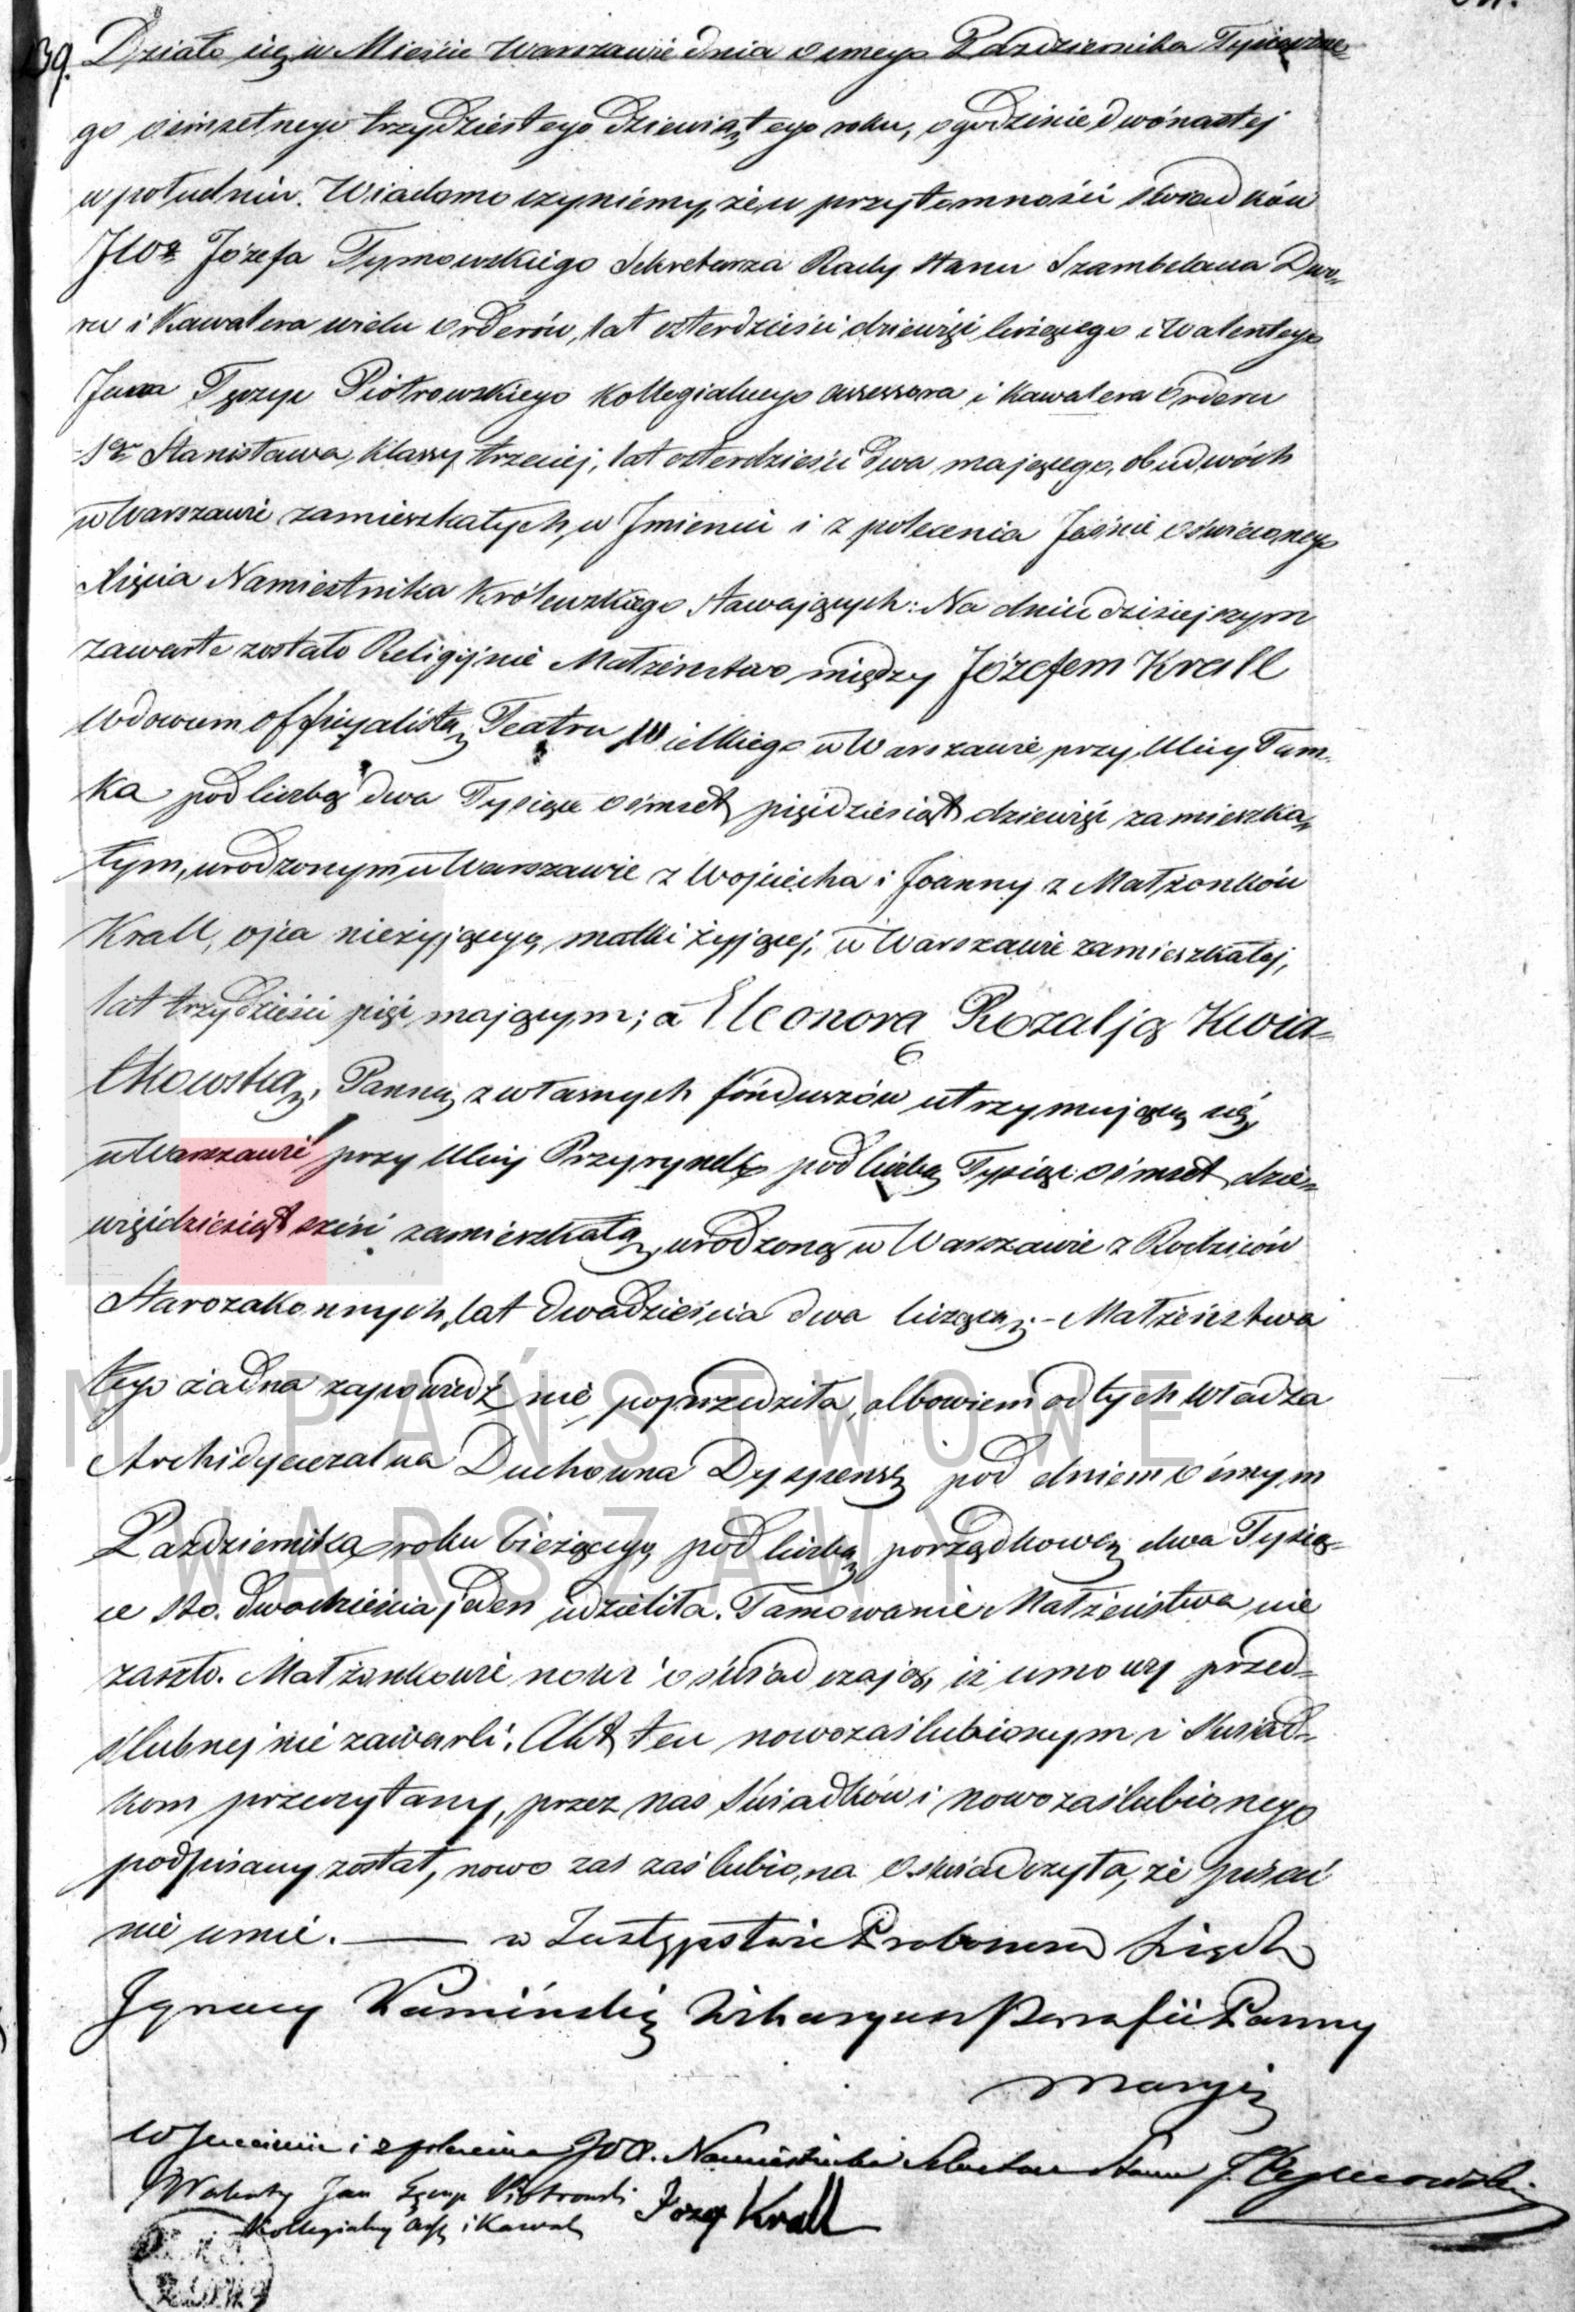 139. Działo się w Mieście Warszawie dnia osmego Pazdziernika Tysiączne-
go osmsetnego trzydziestego dziewiątego roku, o godzinie dwónastej
w południu. Wiadomo czyniemy, że w przytomności świadków
JWo Józefa Tymowskiego Sekretarza Rady Stanu Szambelana Dwo-
ru i Kawalera wielu orderów, lat czterdzieści dziewięć liczącego i Walentego
Jana Tęczyc Piotrowskiego Kollegialnego Assessora i Kawalera Orderu
Sgo Stanisława, Klassy trzeciej, lat czterdzieści dwa mającego, obudwóch
w Warszawie zamieszkałych, w Jmieniu i z polecenia Jaśnie oświeconego
Xięcia Namiestnika Królewskiego stawających: Na dniu dzisiejszym
zawarte zostało Religijnie Małżeństwo między Józefem Krall
Wdowcem offycyalistą Teatru Wielkiego w Warszawie przy Ulicy Tam-
ka pod liczbą dwa Tysiące ośmset pięćdziesiąt dziewięć zamieszka-
łym, urodzonym w Warszawie z Wojciecha i Joanny z Małżonków
Krall, ojca nieżyjącego, matki żyjącej, w Warszawie zamieszkałej,
lat trzydzieści pięć mającym; a Eleonorą Rozalją Kwia-
tkowską, Panną z własnych fónduszów utrzymującą się,
w Warszawie przy Ulicy Przyrynek pod liczbą Tysiąc ośmset dzie-
więćdziesiąt sześć zamieszkałą, urodzoną w Warszawie z Rodziców
Starozakonnych, lat dwadzieścia dwa liczącą; - Małżeństwa
tego żadna zapowiedź nie poprzedziła, albowiem od tych Władza
Archidyecezalna Duchowna Dyspensę pod dniem ósmym
Pazdziernika roku bieżącego, pod liczbą porządkową dwa Tysią-
ce sto dwadzieścia jeden udzieliła. Tamowanie Małżeństwa nie
zaszło. Małżonkowie nowi oświadczają, iż umowy przed-
ślubnej nie zawarli. Akt ten nowozaślubionym i Świad-
kom przeczytany, przez nas Świadków i nowozaślubionego
podpisany został, nowo zaś zaślubiona oświadczyła, że pisać
nie umie. — w Zastępstwie Proboszcza Xiądz
Jgnacy Kamiński Wikaryusz Parafii Panny
Maryi
W Jmieniu i z polecenia JOX. Namiestnika Sekretarz Stanu J. Tymowski
Walenty Jan Tęczyc Piotrowski Józef Krall
Kollegialny Ass i Kawal
PAŃSTWOWE
WARSZAWY